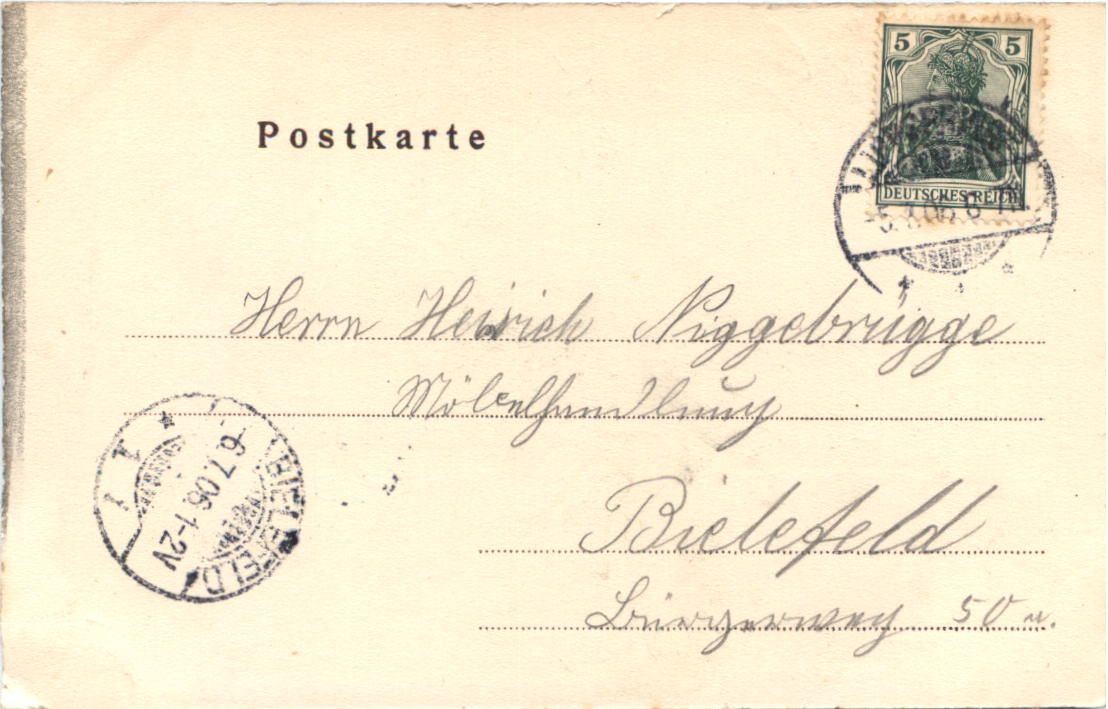 5 5
DEUTSCHES REICH
5.7.06. 6-7N.
Postkarte
Herrn Heinrich Niggebrügge
Möbelhandlung
Bielefeld
Bürgerweg 50 a.
BIELEFELD
6.7.06. 1-2V
* 1 1